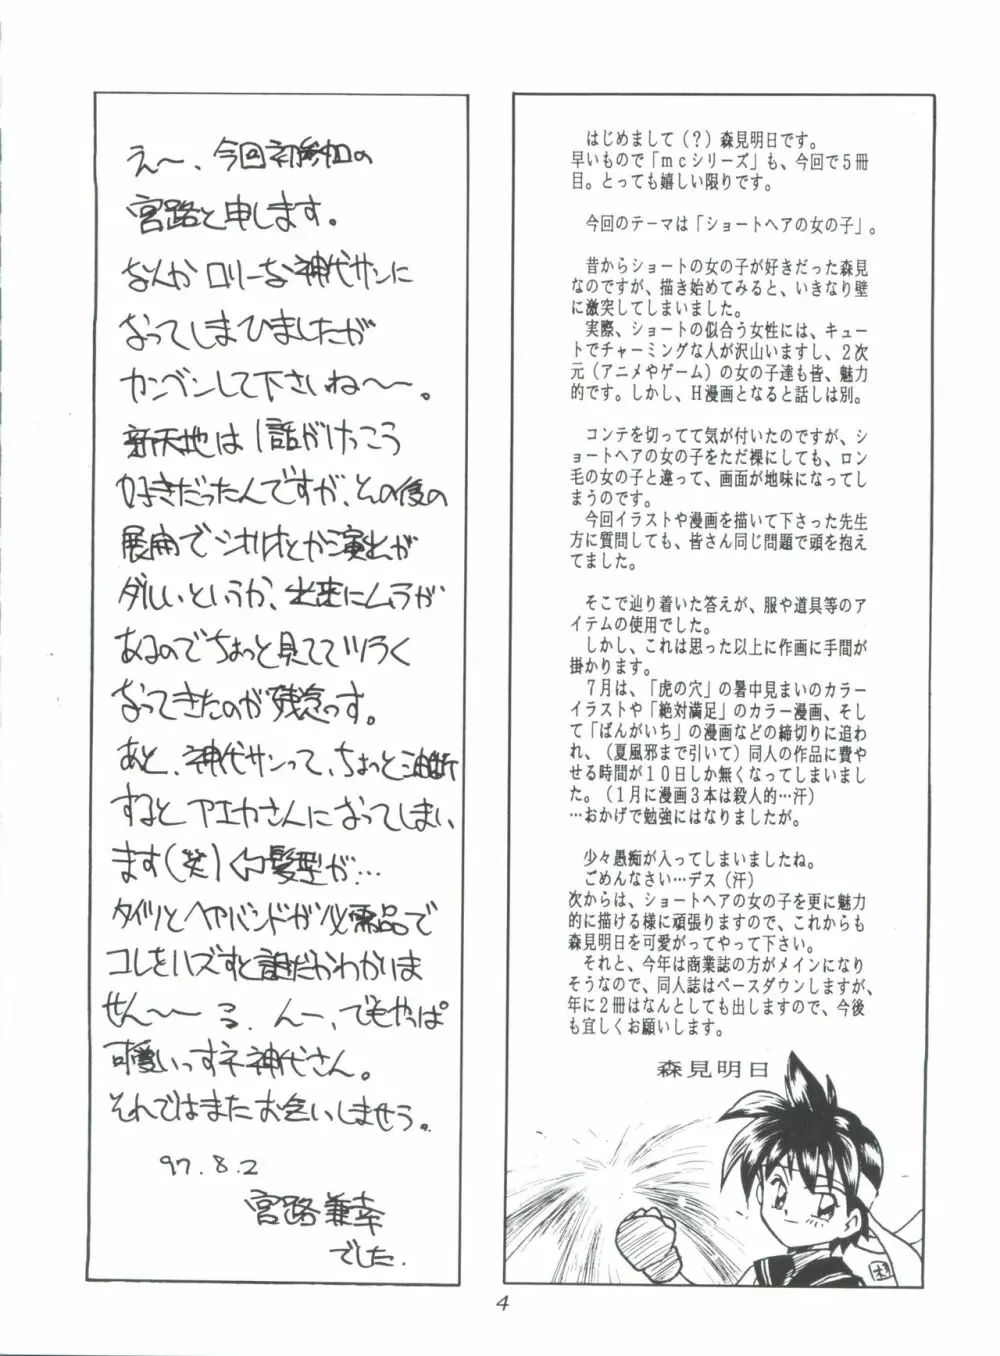 えー、今回初参加の
宮路と申します。
なんかロリーな神代サンに
なってしまひましたが
カンベンして下さいね〜〜。
新天地は1話がけっこう
好きだったんですが、その後の
展開でシナリオとか演出が
ダルいというか、出来にムラが
あるのでちょっと見ててツラく
なってきたのが残念っす。
あと、神代サンって、ちょっと油断
するとアエカさんになってしまい
ます(笑)髪型が…
タイツとヘアバンドが必需品で
コレをハズすと誰だかわかりま
せん〜〜 る。んー、でもやっぱ
可愛いっすネ神代さん。
それではまたお会いしませう。
97.8.2
宮路兼幸
でした.
はじめまして(?)森見明日です。
早いもので「mcシリーズ」も、今回で5冊
目。とっても嬉しい限りです。
今回のテーマは「ショートヘアの女の子」。
昔からショートの女の子が好きだった森見
なのですが、描き始めてみると、いきなり壁
に激突してしまいました。
実際、ショートの似合う女性には、キュー
トでチャーミングな人が沢山いますし、2次
元(アニメやゲーム)の女の子達も皆、魅力
的です。しかし、H漫画となると話しは別。
コンテを切ってて気が付いたのですが、シ
ョートヘアの女の子をただ裸にしても、ロン
毛の女の子と違って、画面が地味になってし
まうのです。
今回イラストや漫画を描いて下さった先生
方に質問しても、皆さん同じ問題で頭を抱え
てました。
そこで辿り着いた答えが、服や道具等のア
イテムの使用でした。
しかし、これは思った以上に作画に手間が
掛かります。
7月は、「虎の穴」の暑中見まいのカラー
イラストや「絶対満足」のカラー漫画、そし
て「ばんがいち」の漫画などの締切りに追わ
れ、(夏風邪まで引いて)同人の作品に費や
せる時間が10日しか無くなってしまいまし
た。(1月に漫画3本は殺人的…汗)
…おかげで勉強にはなりましたが。
少々愚痴が入ってしまいましたね。
ごめんなさい…デス(汗)
次からは、ショートヘアの女の子を更に魅力
的に描ける様に頑張りますので、これからも
森見明日を可愛がってやって下さい。
それと、今年は商業誌の方がメインになり
そうなので、同人誌はペースダウンしますが、
年に2冊はなんとしても出しますので、今後
も宜しくお願いします。
森見明日
4